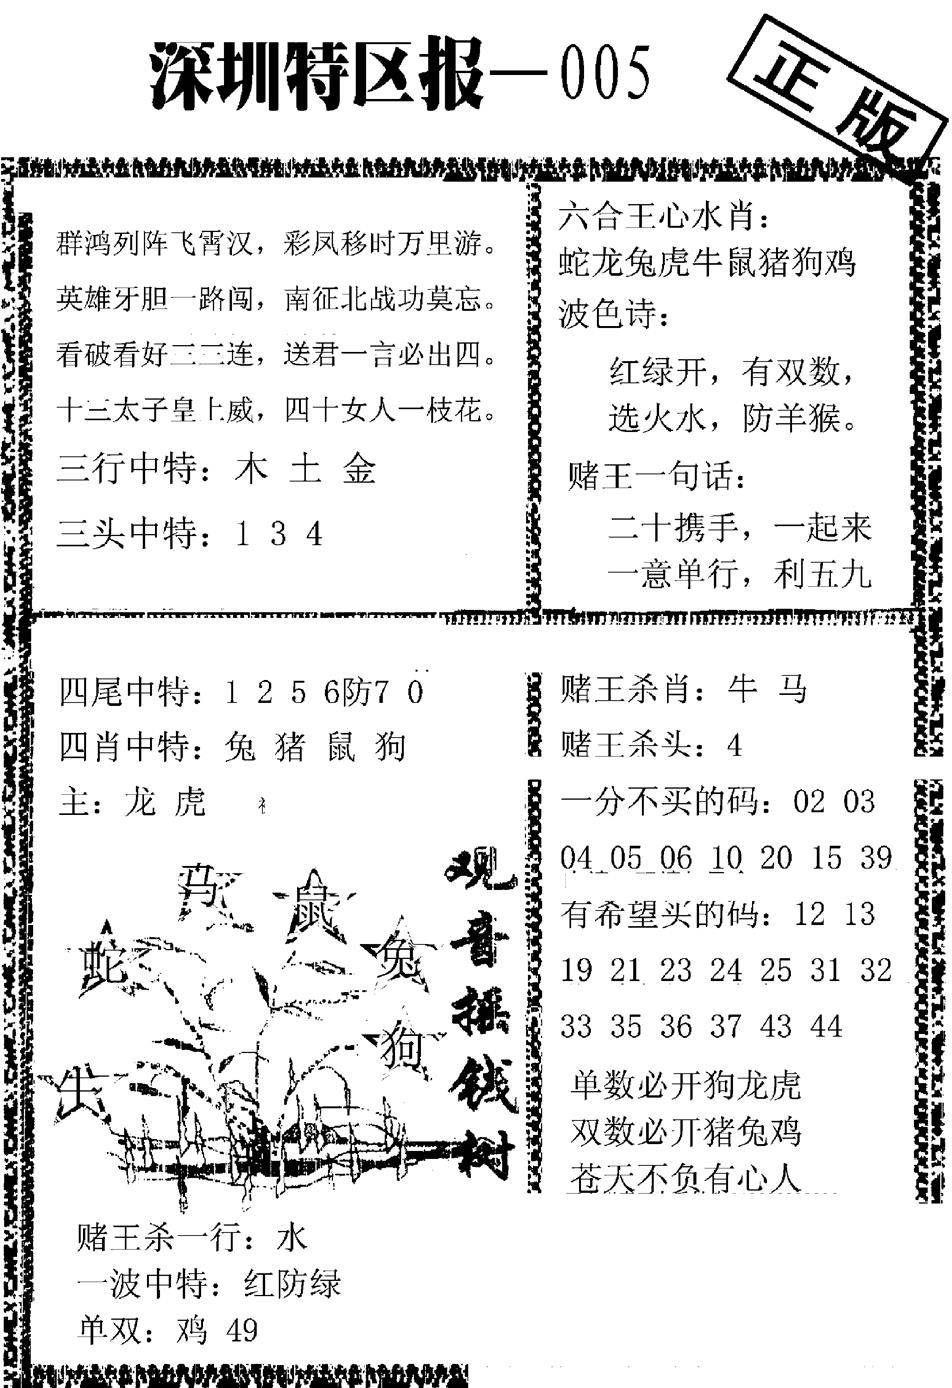 深圳特区报—005
正版
群鸿列阵飞霄汉，彩凤移时万里游。
英雄牙胆一路闯，南征北战功莫忘。
看破看好三三连，送君一言必出四。
十三太子皇上威，四十女人一枝花。
三行中特：木 土 金
三头中特：1 3 4
六合王心水肖：
蛇龙兔虎牛鼠猪狗鸡
波色诗：
红绿开，有双数，
选火水，防羊猴。
赌王一句话：
二十携手，一起来
一意单行，利五九
四尾中特：1 2 5 6防7 0
四肖中特：兔 猪 鼠 狗
主：龙 虎
马
鼠
蛇
兔
狗
牛
观音摇钱树
赌王杀一行：水
一波中特：红防绿
单双：鸡 49
赌王杀肖：牛 马
赌王杀头：4
一分不买的码：02 03
04 05 06 10 20 15 39
有希望买的码：12 13
19 21 23 24 25 31 32
33 35 36 37 43 44
单数必开狗龙虎
双数必开猪兔鸡
苍天不负有心人